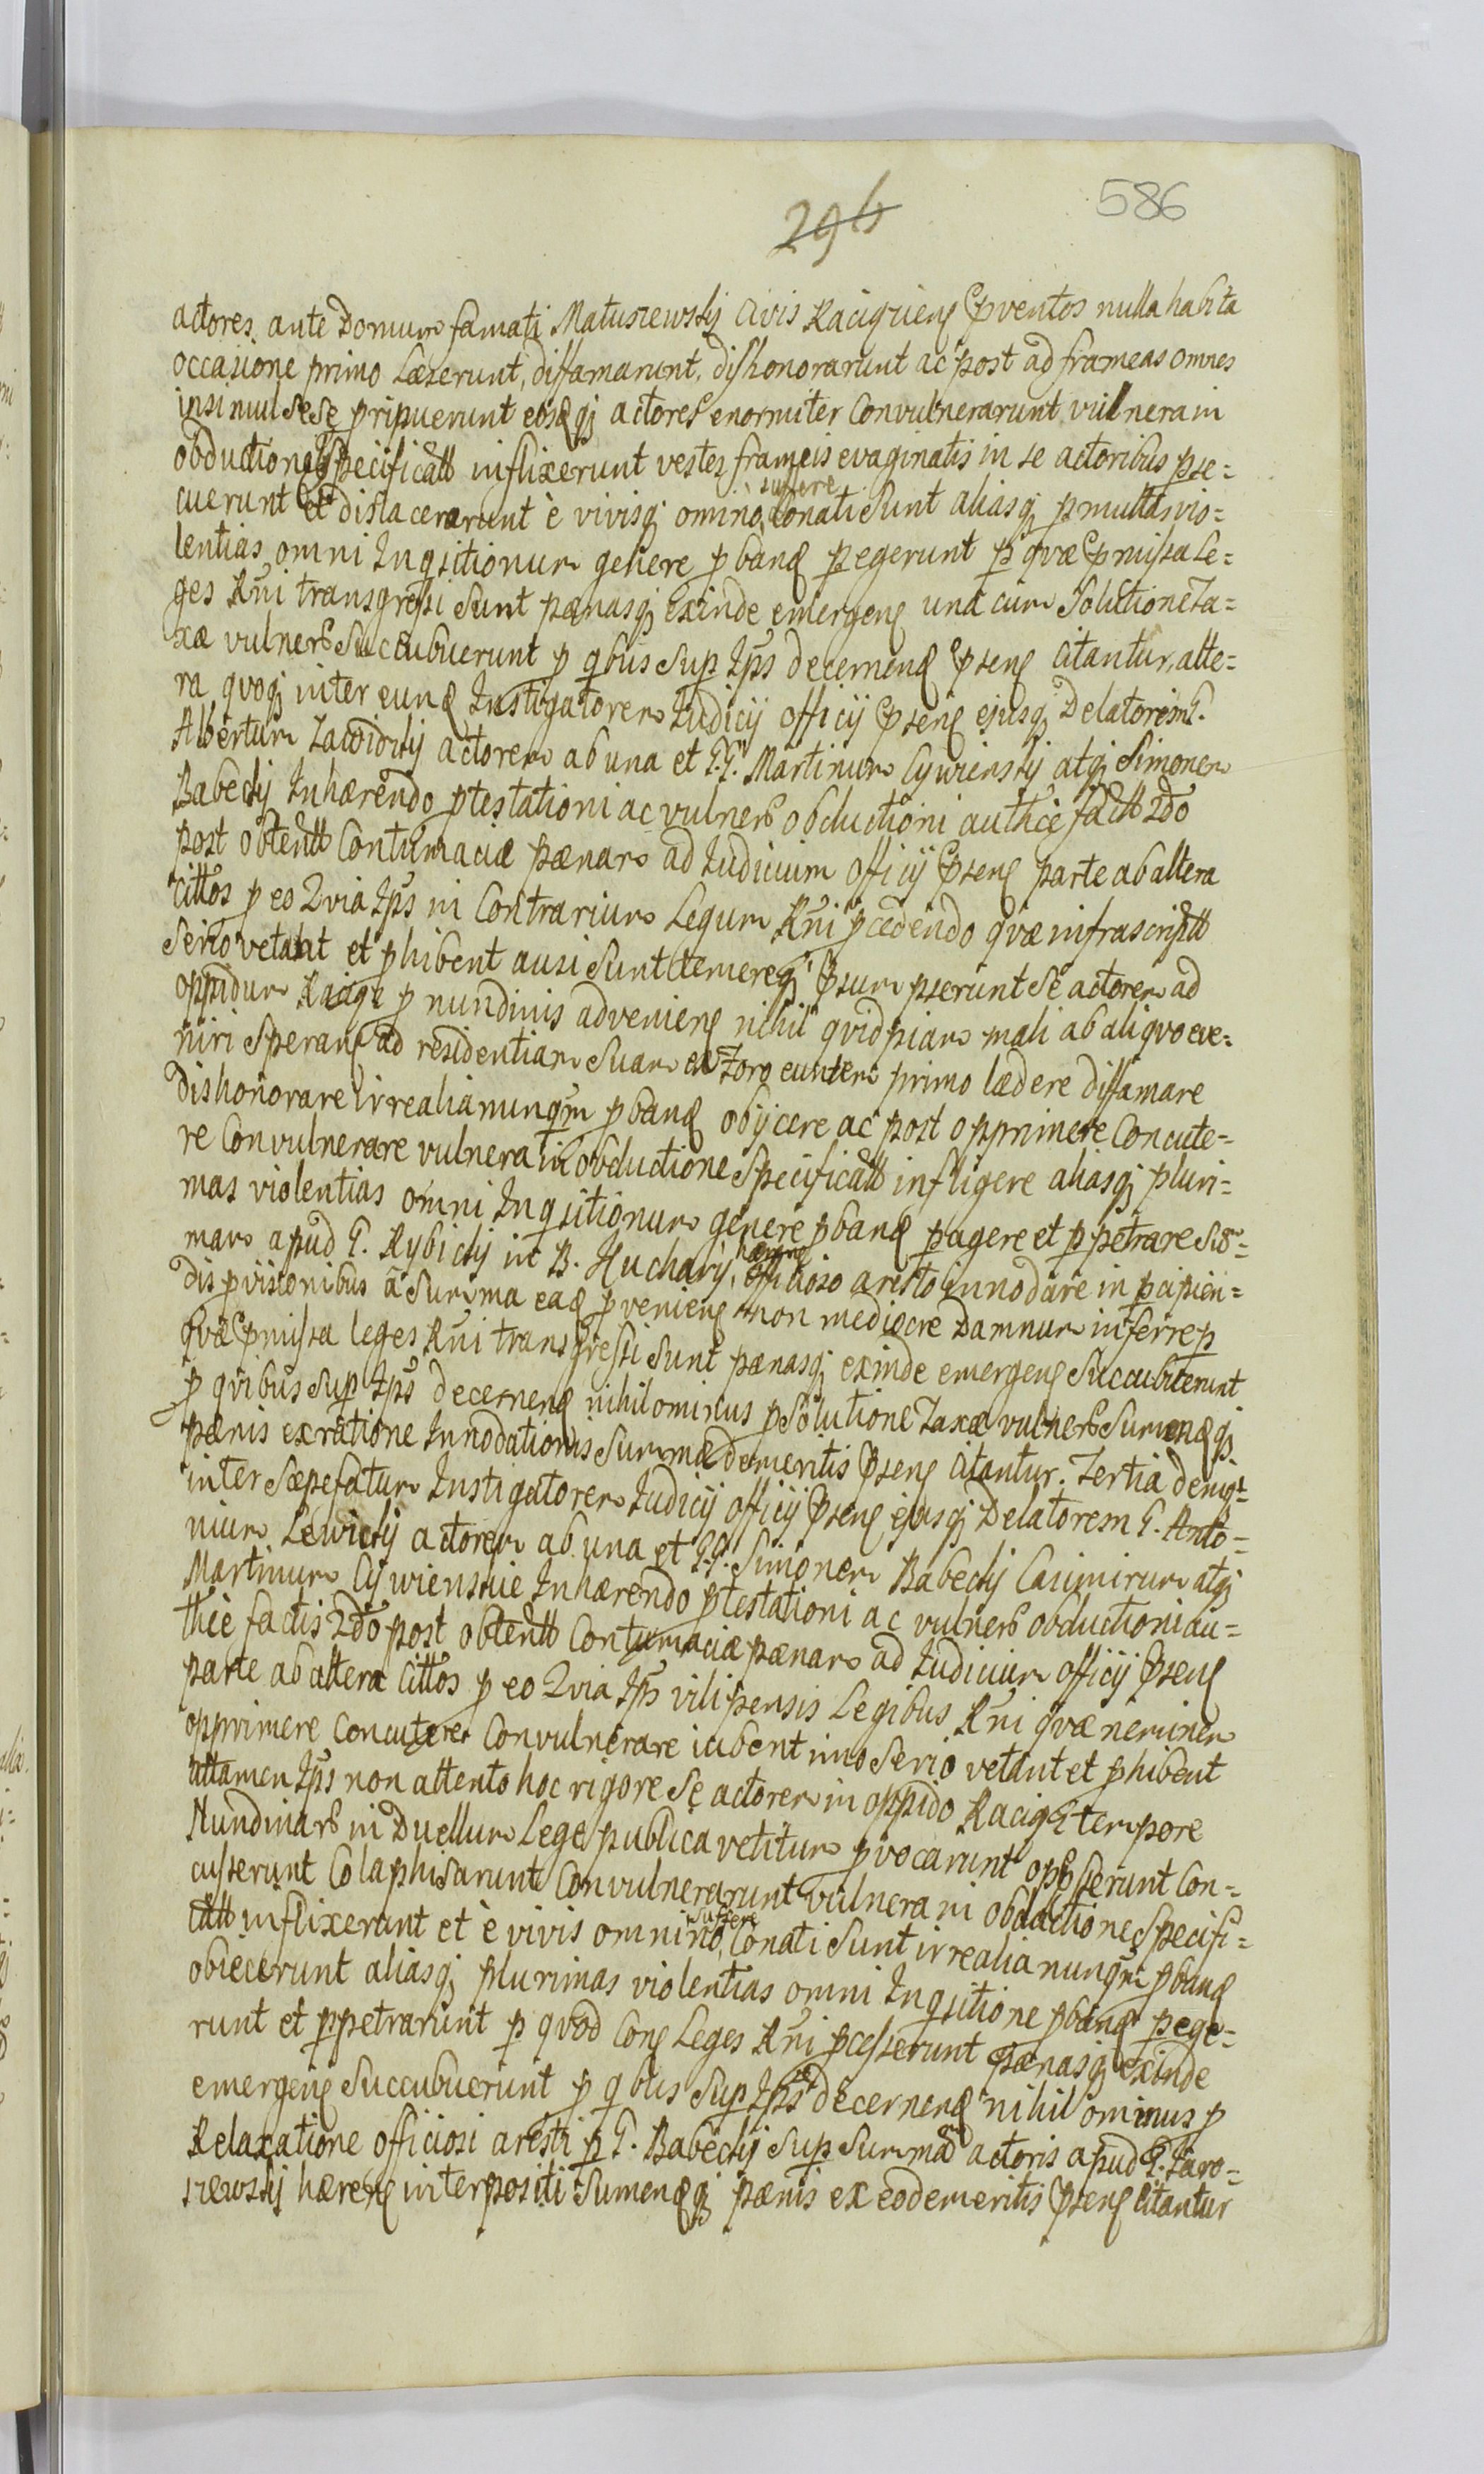 586
296
actores ante Domum famati Matuszewskj Civis Raciąziens pventos nulla habita
occasione primo Læzerunt, diffamarunt, dishonorarunt ac post ad frameas omnes
insimul sese pripuerunt eosqз actores enormiter Convulnerarunt vulnera in
obductione specificatt inflixerunt vestes frameis evaginatis in se actoribus pse=
cuerunt et dislacerarunt è vivisqз omino sustere Conati sunt aliasqз pmultas vio=
lentias omni Inqsitionum genere pband pegerunt p qvæ pmissa Le=
ges Rni transgressi sunt pænasqз exinde emergens una cum Solutione Ta=
xæ vulner Succubuerunt p qbus sup Jps decernend psens Citantur, alte=
ra qvoqз inter eund Instigatorem Judicij officij psens ejusqз Delatorem G.
Albertum Zawidzkj actorem ab una et G.G. Martinum Cywinskj atqз Simonem
Babeckj Inhærendo ptestationi ac vulner obductioni authce factt 2do
post obtentt Contumaciæ pænam ad Judicium officij psens parte ab altera
Cittos p eo Qvia Jps in Contrarium Legum Rni pcedendo qvæ infrascriptt
serio vetant et phibent ausi sunt temereqз psum pserunt se actorem ad
oppidum Raciąz p nundinis adveniens nihil qvidpiam mali ab aliqvo eve=
niri sperans ad residentiam suam ex Foro euntem primo lædere diffamare
dishonorare irrealia nunqm pband obijcere ac post opprimere Concute=
re Convulnerare vulnera in obductione specificatt infligere aliasqз pluri=
mas violentias omni Inqsitionum genere pband pagere et ppetrare Sum=
mam apud G. Rybickj in B. Kuchary hærens officioso aresto innodare in pcipien=
dis pvisionibus à Summa ead pveniens non mediocre Damnum inferre p
qvæ pmissa leges Rni transgressi sunt pænasqз exinde emergens Succubuerunt
p qvibus sup Jps decernend nihilominus p Solutione Taxæ vulner Sumendqз
pænis ex ratione Innodationis Summæ demeritis psens Citantur. Tertia deniq=
inter sæpefatum Instigatorem Judicij officij psens ejusqз Delatorem G. Anto=
nium Lewickj actorem ab una et G.G. Simonem Babeckj Casimirum atqз
Martinum Cywinskie Inhærendo ptestationi ac vulner obductioni au=
thce factis 2do post obtentt Contumaciæ pænam ad Judicium officij psens
parte ab altera Cittos p eo Qvia Jps vilipensis Legibus Rni qvæ neminem
opprimere Concutere Convulnerare iubent imo serio vetant et phibent
attamen Jps non attento hoc rigore se actorem in oppido Raciąz tempore
Nundinar in Duellum Lege publica vetitum pvocarunt oppsserunt Con=
cusserunt Colaphisarunt Convulnerarunt vulnera in obductione specifi=
catt inflixerunt et è vivis omnino suffere Conati sunt irrealia nunqm pband
obiecerunt aliasqз plurimas violentias omni Inqsitione pband pege=
runt et ppetrarunt p qvod Cons Leges Rni pcesserunt pænasqз exinde
emergens Succubuerunt p qbus sup Jps decernend nihilominus p
Relaxatione officiosi aresti p G. Babeckj sup Summa actoris apud G. Jaro=
szewskj hærens interpositi Sumendqз pænis ex eo demeritis psens Citantur